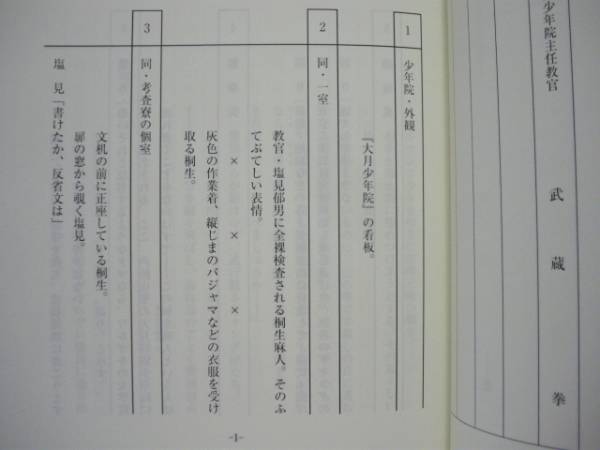 少年院主任教官　武　蔵　拳
1　少年院・外観
『大月少年院』の看板。
2　同・一室
教官・塩見郁男に全裸検査される桐生麻人。そのふ
てぶてしい表情。
×　×　×
灰色の作業着、縦じまのパジャマなどの衣服を受け
取る桐生。
3　同・考査寮の個室
文机の前に正座している桐生。
扉の窓から覗く塩見。
塩　見「書けたか、反省文は」
-1-